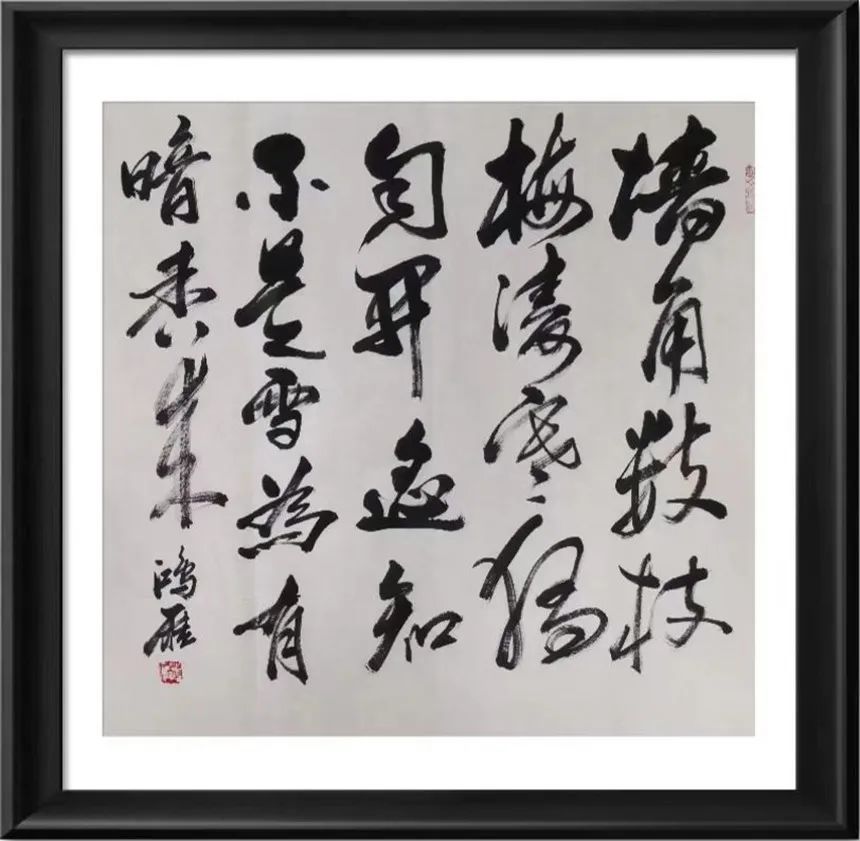 墙角数枝
梅凌寒獨
自開遥知
不是雪為有
暗香来
鸿雁